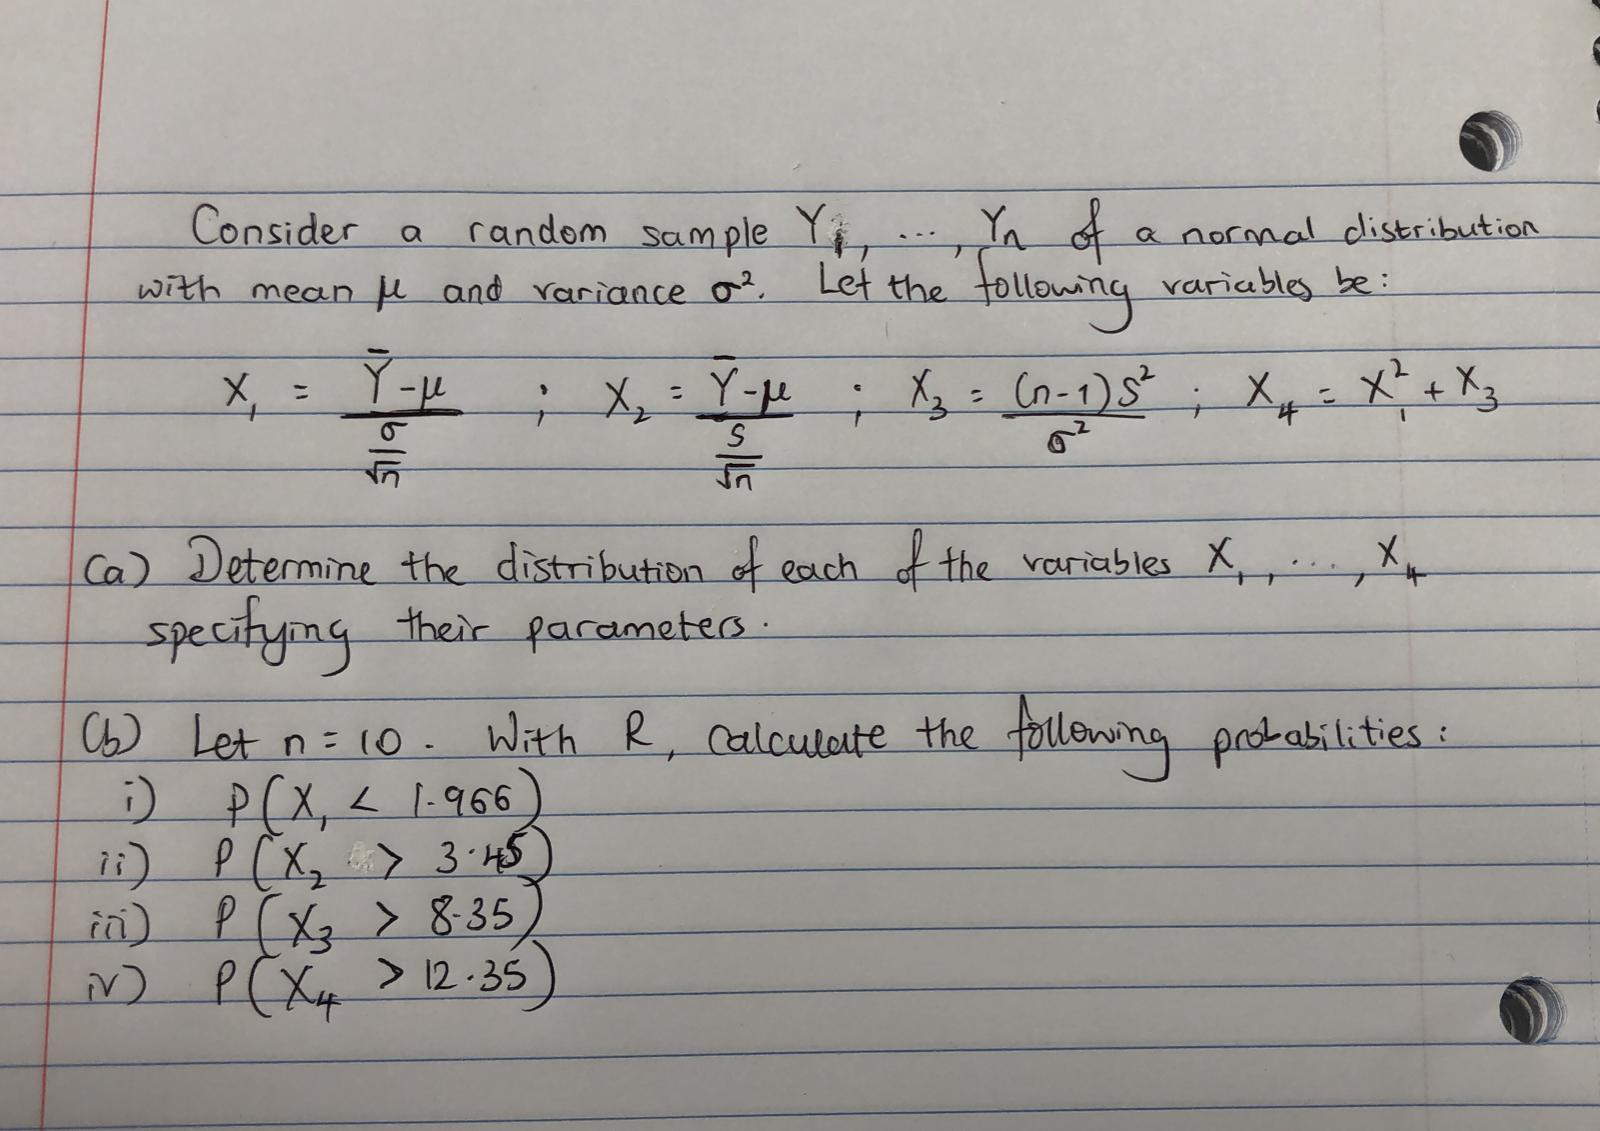 Consider a random sample Y₁, ..., Yn of a normal distribution
with mean μ and variance σ². Let the following variables be:
X₁ = (Ȳ-μ)/(σ/√n) ; X₂ = (Ȳ-μ)/(S/√n) ; X₃ = (n-1)S²/σ² ; X₄ = X₁² + X₃
(a) Determine the distribution of each of the variables X₁, ..., X₄
specifying their parameters.
(b) Let n = 10. With R, calculate the following probabilities:
i) P(X₁ < 1.966)
ii) P(X₂ > 3.45)
iii) P(X₃ > 8.35)
iv) P(X₄ > 12.35)